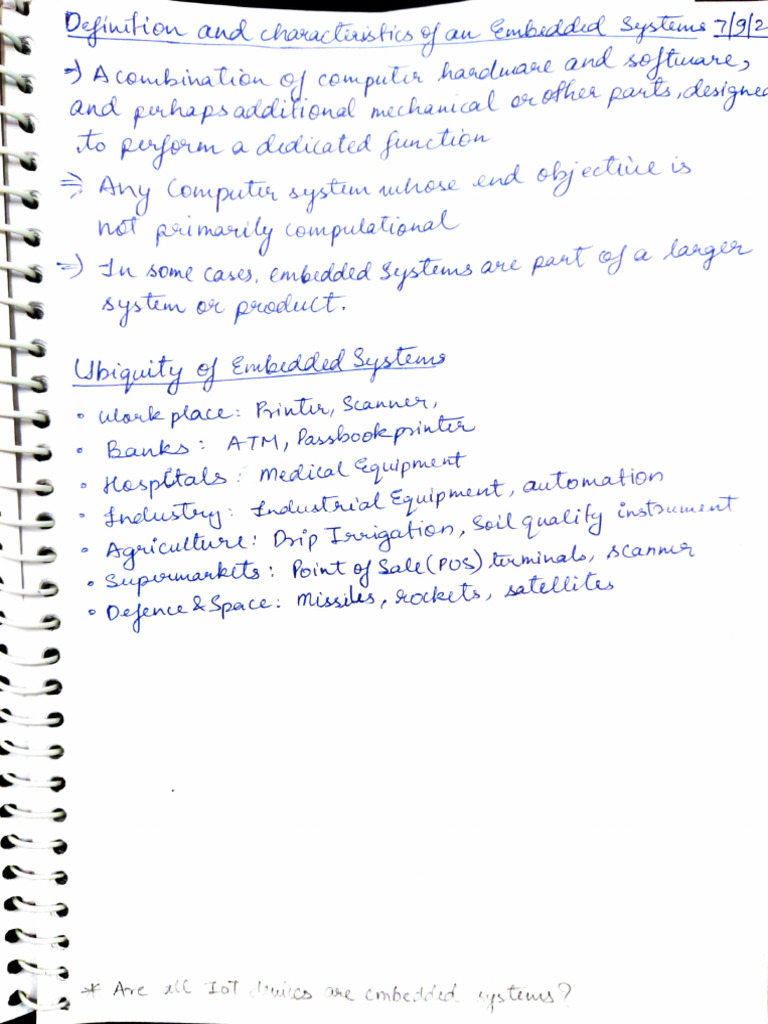 Definition and characteristics of an Embedded Systems 7/9/2
→) A combination of computer hardware and software,
and perhaps additional mechanical or other parts, designed
to perform a dedicated function
⇒ Any Computer system whose end objective is
not primarily computational
⇒) In some cases, embedded Systems are part of a larger
system or product.
Ubiquity of Embedded Systems
• Work place: Printer, Scanner,
• Banks: ATM, Passbook printer
• Hospitals: Medical Equipment
• Industry: Industrial Equipment, automation
• Agriculture: Drip Irrigation, Soil quality instrument
• Supermarkets: Point of Sale (POS) terminals, scanner
• Defence & Space: Missiles, rockets, satellites
* Are all IoT devices are embedded systems?